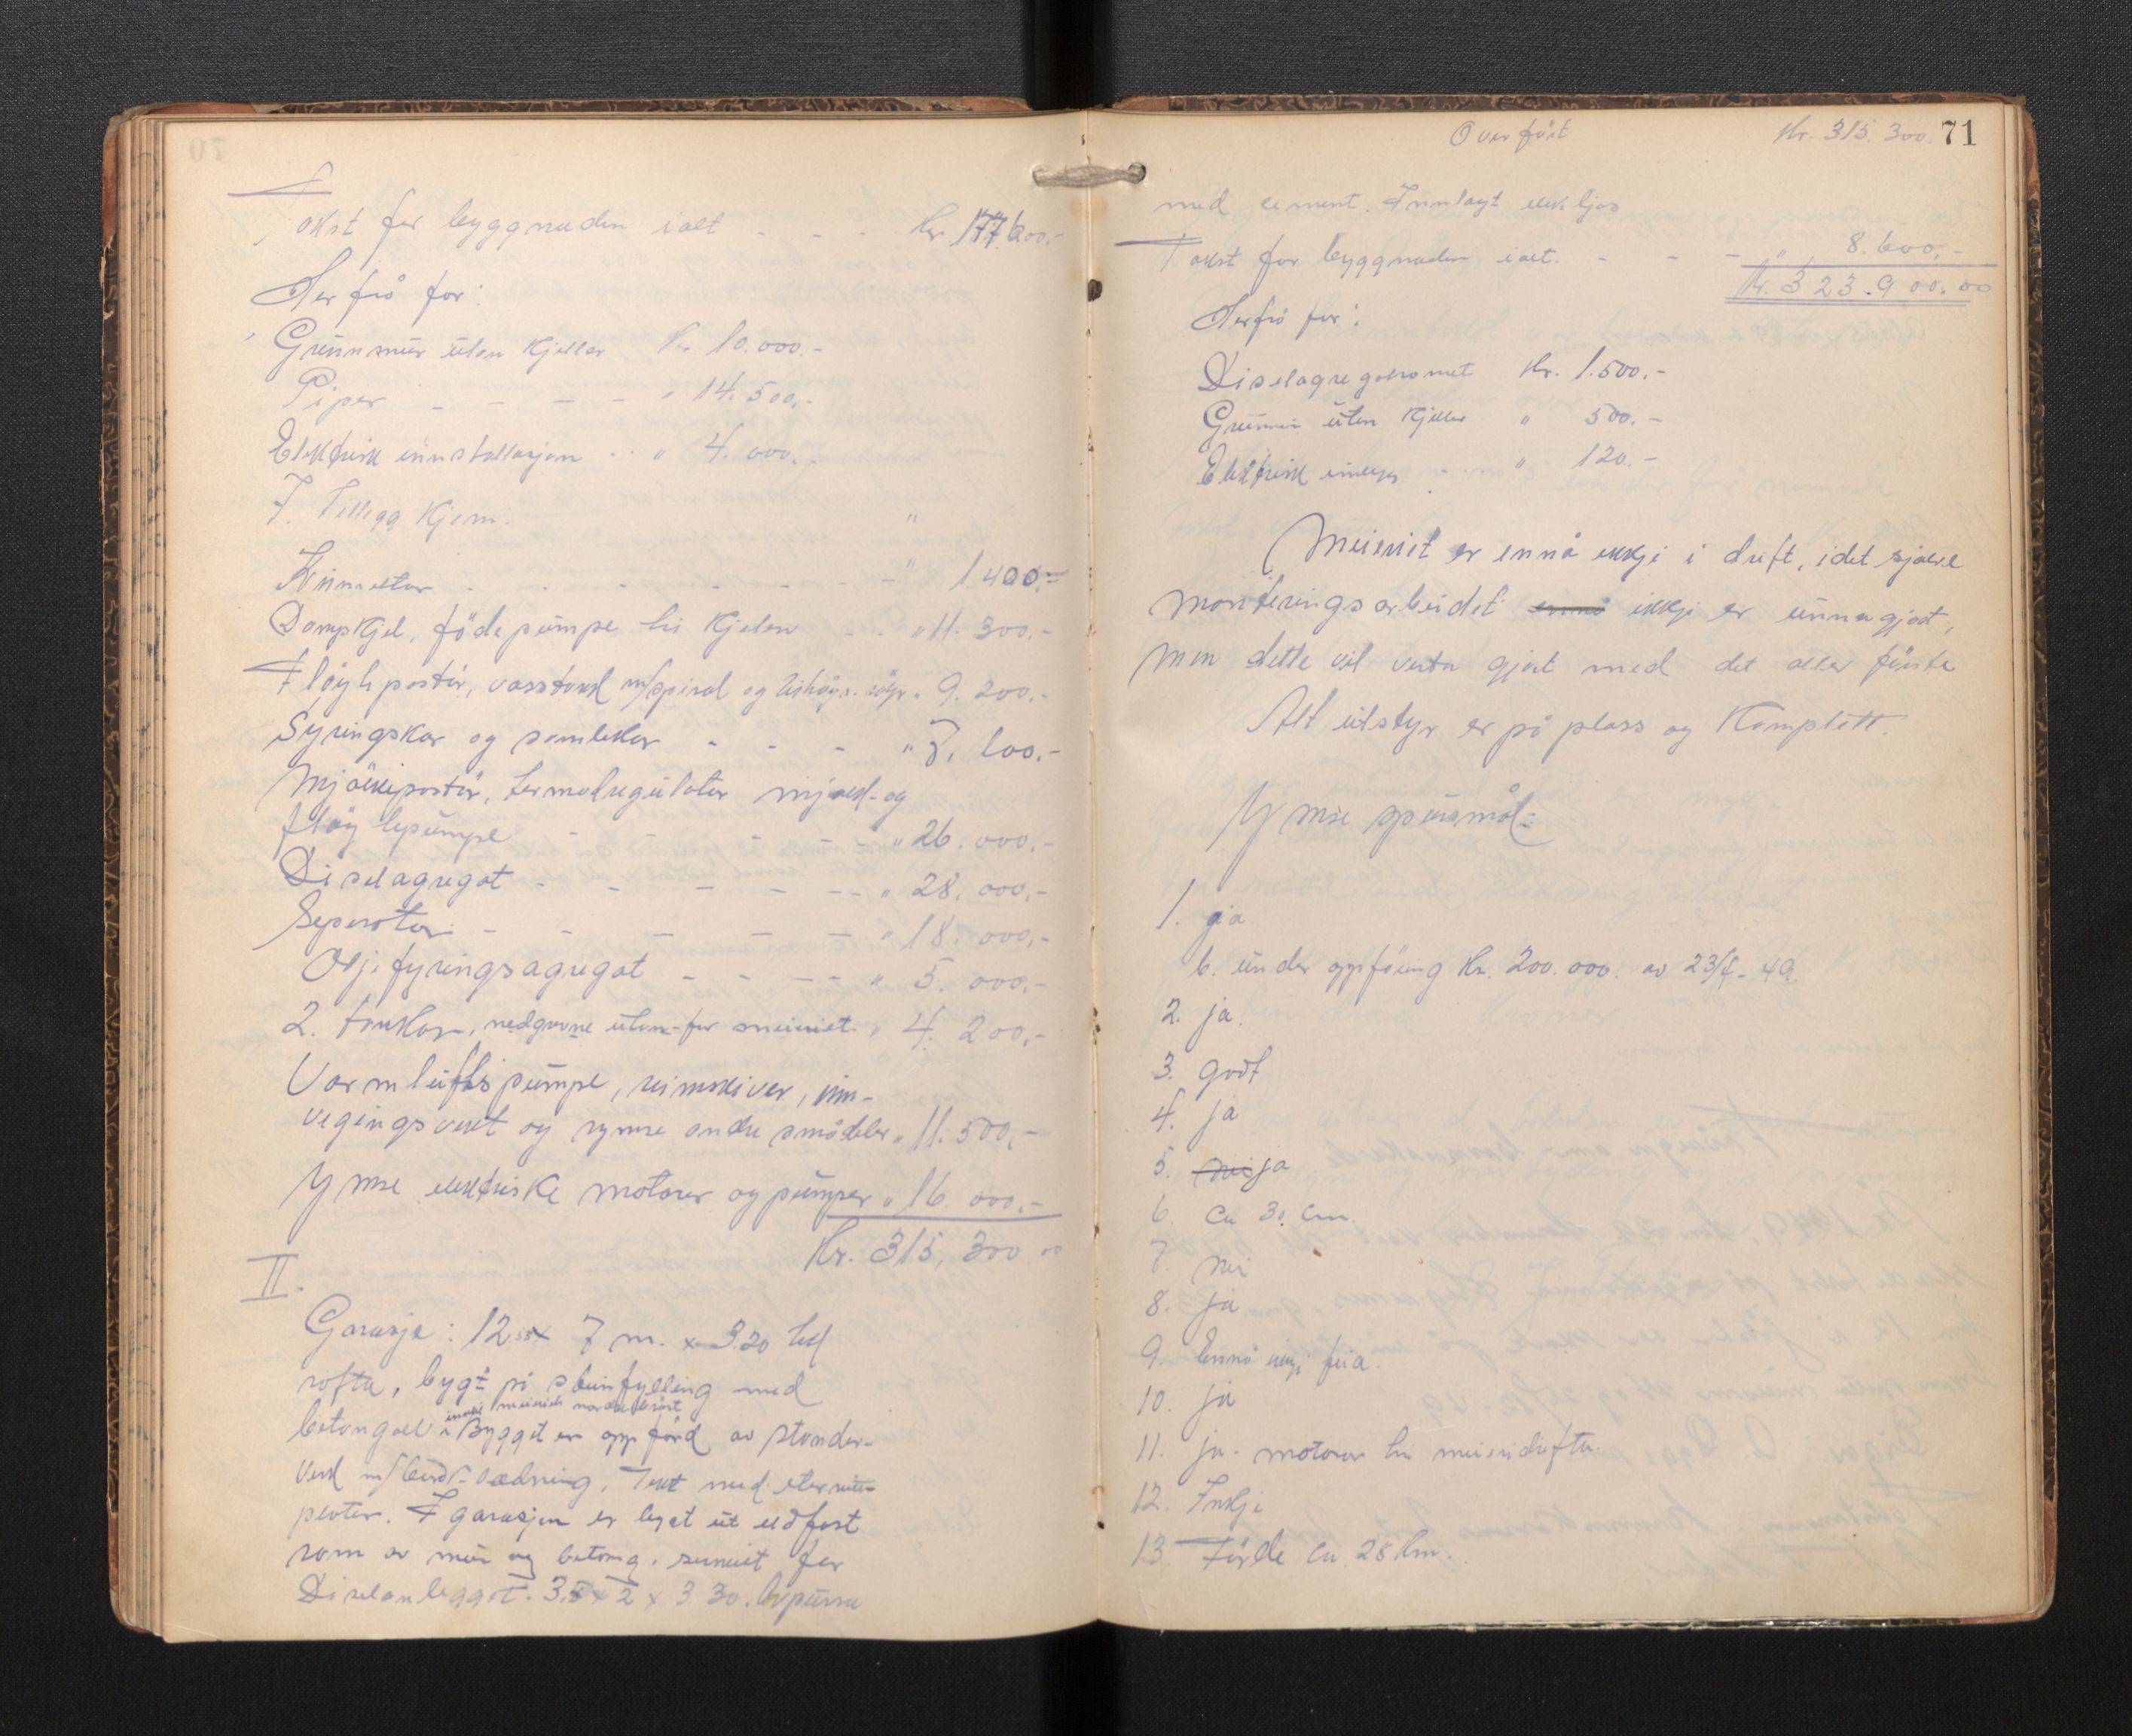 Takst for byggnaden ialt - - - kr 177.600.-
Herfrå for:
Grunnmur uten kjeller kr 10.000.-
Piper - - - - " 14.500.-
Elektrisk innstallasjon - - " 4.000.-
I tillegg kjem: "
- - - - - - " 1400.-
Dampkjel, födepumpe til kjelen - - " 11.300.-
Flöyhpostör, vasstank m/spiral og " 9.200.-
Syringskar og samlekar - - - "
Mjölkepostör, termoregulator mjölk- og
flöytepumpe - - - - - " 26.000.-
Diselagregat - - - - - " 28.000.-
Seperator - - - - - " 18.000.-
Oljefyringsagregat - - - - " 5.000.-
2. tankar, nedgravne utanfor meieriet " 4.200.-
Varmluftspumpe, reimskiver, inn-
vegingsvekt og ymse andre smådeler " 11.500.-
Ymse elektriske motorer og pumper " 16.000.-
Kr. 315,300.00
II.
Garasje: 12 x 7 m. x 3.20 til
rofta, bygt på steinfylling med
inntil meieriets nordre
betongall. Bygget er oppförd av stender-
verk m/bord-kledning. Tekt med eternitt-
plater. I garasjen er bygt ut eldfast
rom av mur og betong, serleit for
Diselanlegget. 3.5 x 2 x 3.30. Avpussa
Överfört Kr. 315.300. 71
med cement. Innlagt elek ljos
Takst for byggnaden ialt. - - - " 8.600,-
Kr. 323.900.00
Herfrå for:
kr. 1.500.-
Grunnmur uten kjeller " 500.-
Elektrisk innlegg - - - " 120.-
Meieriet er ennå ikkje i drift, idet sjölve
monteringsarbeidet ennå ikkje er unnagjort,
men dette vil verta gjort med det aller fürste
Alt utstyr er på plass og komplett.
Ymse spursmål:
1. ja
b. under oppföring kr. 200.000. av 23/4-49.
2. ja.
3. godt
4. ja
5. nei ja
6. ca 30 cm.
7. nei
8. ja
9. Ennå ikkje feia.
10. ja
11. ja - motorar til meieridrifta.
12. Inkje
13 Förde ca. 28 km.